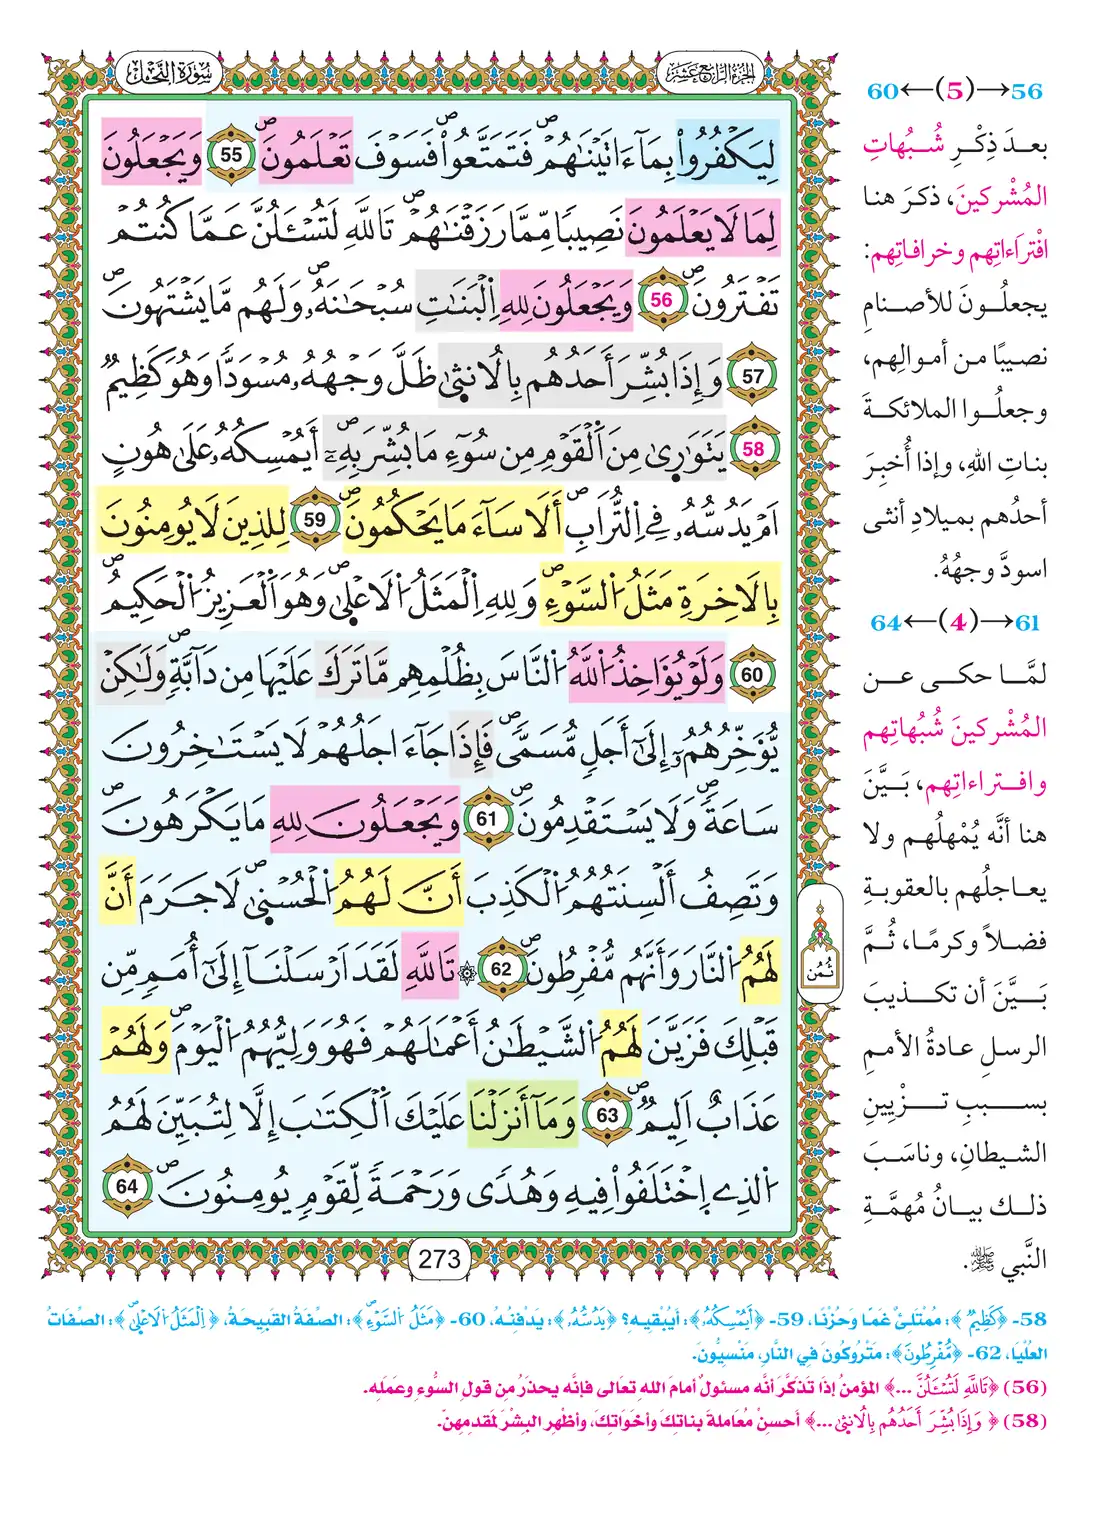 سُورَةُ النَّحْلِ
الجُزْءُ الرَّابِعَ عَشَرَ
لِيَكْفُرُواْ بِمَآ ءَاتَيْنَٰهُمْ فَتَمَتَّعُواْ فَسَوْفَ تَعْلَمُونَ 55 وَيَجْعَلُونَ
لِمَا لَا يَعْلَمُونَ نَصِيبًا مِّمَّا رَزَقْنَٰهُمْ تَاللَّهِ لَتُسْـَٔلُنَّ عَمَّا كُنتُمْ
تَفْتَرُونَ 56 وَيَجْعَلُونَ لِلهِ اِلْبَنَٰتِ سُبْحَٰنَهُۥ وَلَهُم مَّا يَشْتَهُونَ
57 وَإِذَا بُشِّرَ أَحَدُهُم بِالُانث۪ىٰ ظَلَّ وَجْهُهُۥ مُسْوَدًّا وَهُوَ كَظِيمٌ
58 يَتَوَٰر۪ىٰ مِنَ اَلْقَوْمِ مِن سُوٓءِ مَا بُشِّرَ بِهِۦٓ أَيُمْسِكُهُۥ عَلَىٰ هُونٍ
اَمْ يَدُسُّهُۥ فِے اِلتُّرَابِ أَلَا سَآءَ مَا يَحْكُمُونَ 59 لِلذِينَ لَا يُومِنُونَ
بِالَاخِرَةِ مَثَلُ اُلسَّوْءِ وَلِلهِ اِلْمَثَلُ اُلَاعْل۪ىٰ وَهُوَ اَلْعَزِيزُ اُلْحَكِيمُ
60 وَلَوْ يُؤَاخِذُ اُللَّهُ اُلنَّاسَ بِظُلْمِهِم مَّا تَرَكَ عَلَيْهَا مِن دَآبَّةٍ وَلَٰكِنْ
يُّؤَخِّرُهُمُۥٓ إِلَىٰٓ أَجَلٍ مُّسَمًّى فَإِذَا جَآءَ اجَلُهُمْ لَا يَسْتَٰخِرُونَ
سَاعَةً وَلَا يَسْتَقْدِمُونَ 61 وَيَجْعَلُونَ لِلهِ مَا يَكْرَهُونَ
وَتَصِفُ أَلْسِنَتُهُمُ اُلْكَذِبَ أَنَّ لَهُمُ اُلْحُسْن۪ىٰ لَا جَرَمَ أَنَّ
لَهُمُ اُلنَّارَ وَأَنَّهُم مُّفْرِطُونَ 62 ۞ تَاللَّهِ لَقَدَ اَرْسَلْنَآ إِلَىٰٓ أُمَمٍ مِّن
قَبْلِكَ فَزَيَّنَ لَهُمُ اُلشَّيْطَٰنُ أَعْمَٰلَهُمْ فَهُوَ وَلِيُّهُمُ اُلْيَوْمَ وَلَهُمْ
عَذَابٌ اَلِيمٌ 63 وَمَآ أَنزَلْنَا عَلَيْكَ اَلْكِتَٰبَ إِلَّا لِتُبَيِّنَ لَهُمُ
اُلذِے اِخْتَلَفُواْ فِيهِ وَهُدًى وَرَحْمَةً لِّقَوْمٍ يُومِنُونَ 64
ثُمُن
273
56→(5)←60
بعـدَ ذِكْـرِ شُـبُهاتِ
المُشْركينَ، ذكـرَ هنـا
افْتراءَاتِهم وخرافاتِهم:
يجعلُـونَ للأصنـامِ
نصيبًا مـن أموالِهم،
وجعلُـوا الملائكـةَ
بناتِ اللهِ، وإذا أُخبِـرَ
أحدُهم بميلادِ أنثـى
اسودَّ وجهُهُ.
61→(4)←64
لمَّـا حكـى عـن
المُشْركينَ شُبُهاتِهم
وافـتراءاتِهم، بَـيَّنَ
هنا أنَّه يُمْهلُهـم ولا
يعـاجلُهم بالعقوبـةِ
فضلاً وكرمًا، ثُـمَّ
بَـيَّنَ أن تكـذيبَ
الرسلِ عـادةُ الأمـمِ
بسـببِ تـزْيينِ
الشيطانِ، وناسَـبَ
ذلـك بيـانُ مُهمَّـةِ
النَّبي ﷺ.
58- ﴿كَظِيمٌ﴾: مُمْتَلِئٌ غَمًّا وَحُزْنًا، 59- ﴿أَيُمْسِكُهُۥ﴾: أَيُبْقيهِ؟ ﴿يَدُسُّهُۥ﴾: يَدْفِنُـهُ، 60- ﴿مَثَلُ اُلسَّوْءِ﴾: الصِّفَةُ القَبِيحَةُ، ﴿اِلْمَثَلُ اُلَاعْل۪ىٰ﴾: الصِّفَاتُ
العُلْيَا، 62- ﴿مُّفْرِطُونَ﴾: مَتْرُوكُونَ فِي النَّارِ، مَنْسِيُّونَ.
(56) ﴿تَاللَّهِ لَتُسْـَٔلُنَّ ...﴾ المؤمنُ إذا تَذكَّرَ أنَّه مسئولٌ أمامَ اللهِ تعالى فإنَّه يحذرُ من قولِ السُّوءِ وعَمَلِه.
(58) ﴿وَإِذَا بُشِّرَ أَحَدُهُم بِالُانث۪ىٰ ...﴾ أحسنْ مُعاملةَ بناتِكَ وأخَوَاتِكَ، وأظْهِرِ البِشْرَ لمَقدمِهنَّ.